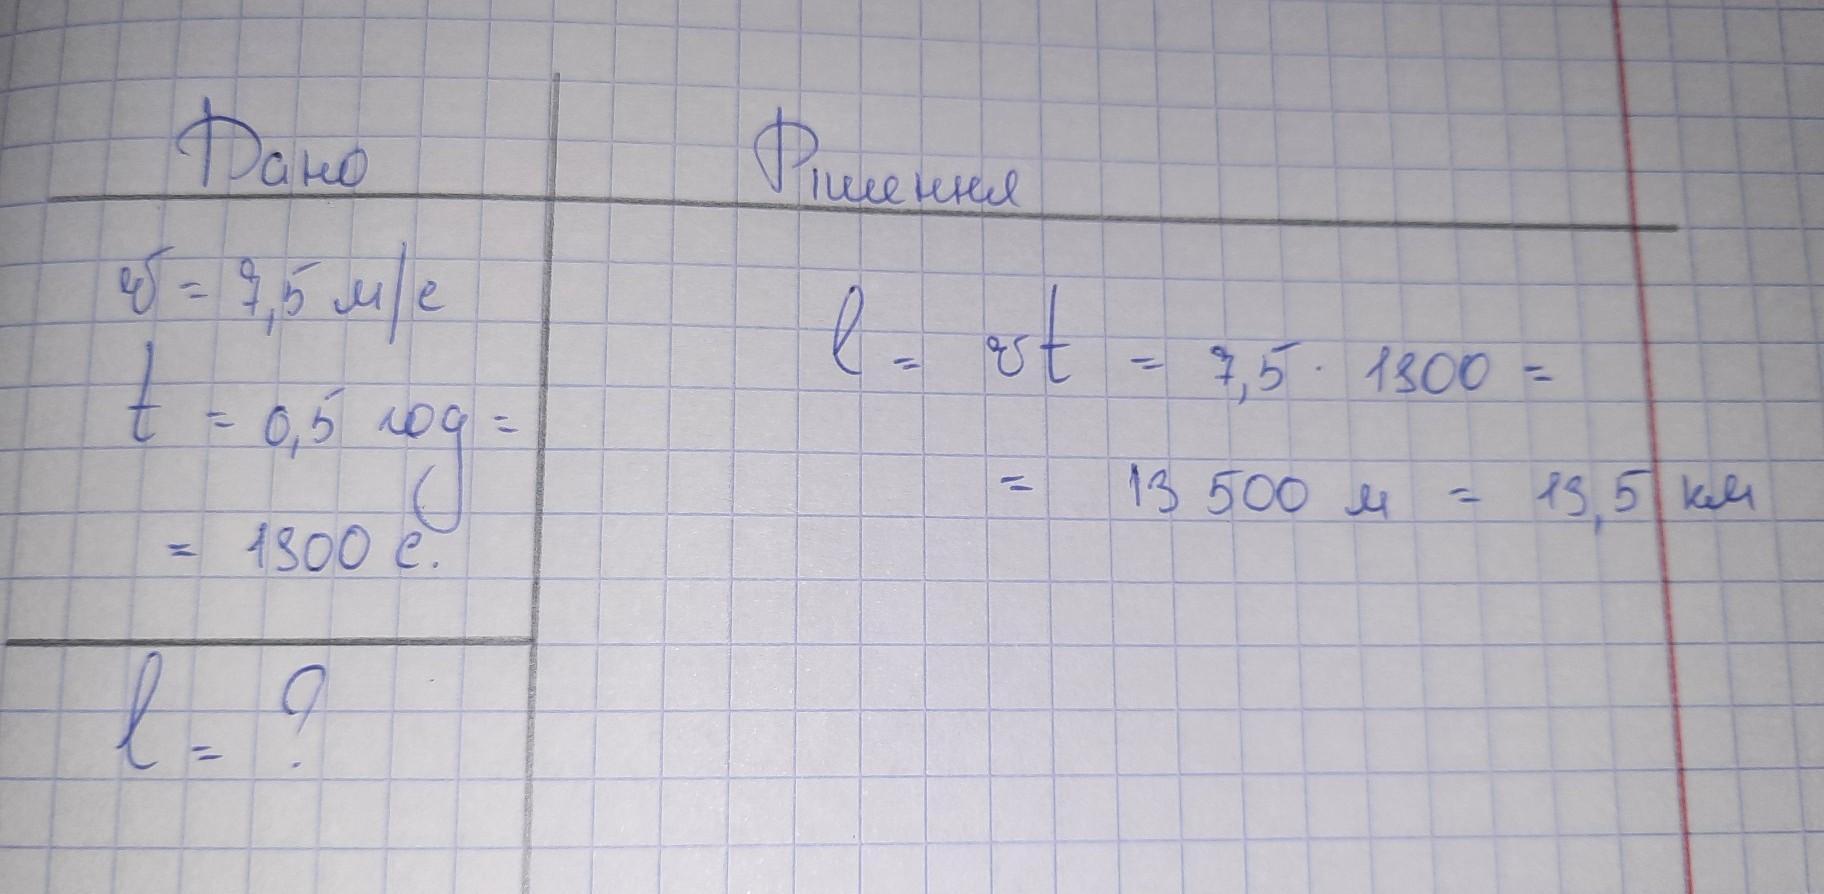 Дано
Рішення
v = 7,5 м/с
t = 0,5 год =
= 1800 с.
l = ?
l = vt = 7,5 · 1800 =
= 13 500 м = 13,5 км